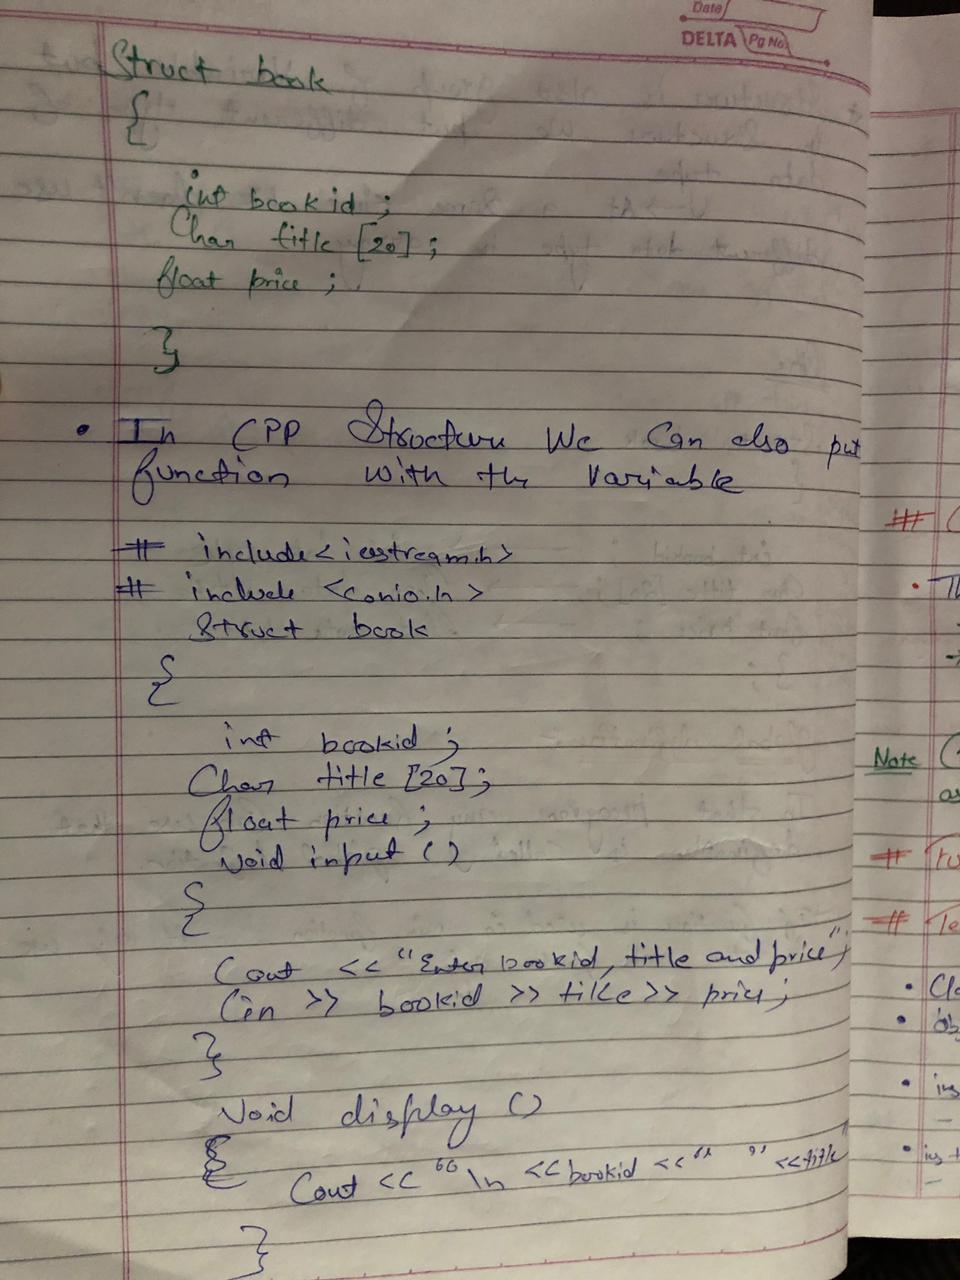 Date
DELTA Pg No.
Struct book
{
int bookid ;
Char title [20] ;
float price ;
}
• In CPP Structure We Can also put
function with the Variable
# include<iostream.h>
# include <conio.h>
Struct book
{
int bookid ;
Char title [20];
float price ;
Void input ()
{
Cout << "Enter bookid, title and price";
Cin >> bookid >> title >> price;
}
Void display ()
{
Cout << "\n << bookid << " " << title
}
#
• Th
Note
as
#
#
• Cla
• ob
• ins
•